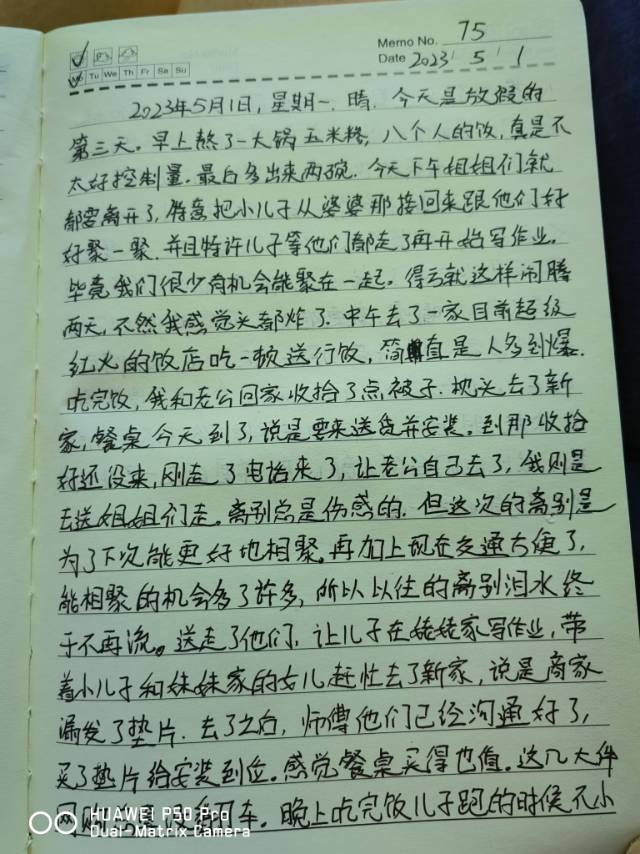 Memo No. 75
Mo Tu We Th Fr Sa Su
Date 2023 / 5 / 1
2023年5月1日，星期一，晴．今天是放假的
第三天。早上熬了一大锅五米粥，八个人的饭，真是不
太好控制量．最后多出来两碗．今天下午姐姐们就
都要离开了，特意把小儿子从婆婆那接回来跟他们好
好聚一聚．并且特许儿子等他们都走了再开始写作业．
毕竟我们很少有机会能聚在一起。得亏就这样闹腾
两天，不然我感觉头都炸了．中午去了一家目前超级
红火的饭店吃一顿送行饭，简直是人多到爆．
吃完饭，我和老公回家收拾了点被子．枕头去了新
家，餐桌今天到了，说是要来送货并安装。到那收拾
好还没来，刚走了电话来了，让老公自己去了，我则是
去送姐姐们走。离别总是伤感的．但这次的离别是
为了下次能更好地相聚。再加上现在交通方便了，
能相聚的机会多了许多，所以以往的离别泪水终
于不再流。送走了他们，让儿子在姥姥家写作业，带
着小儿子和妹妹家的女儿赶忙去了新家，说是商家
漏发了垫片．去了之后，师傅他们已经沟通好了，
买了垫片给安装到位。感觉餐桌买得也值。这几大件
网购 没有翻车。晚上吃完饭儿子跑的时候不小
HUAWEI P50 Pro
Dual-Matrix Camera